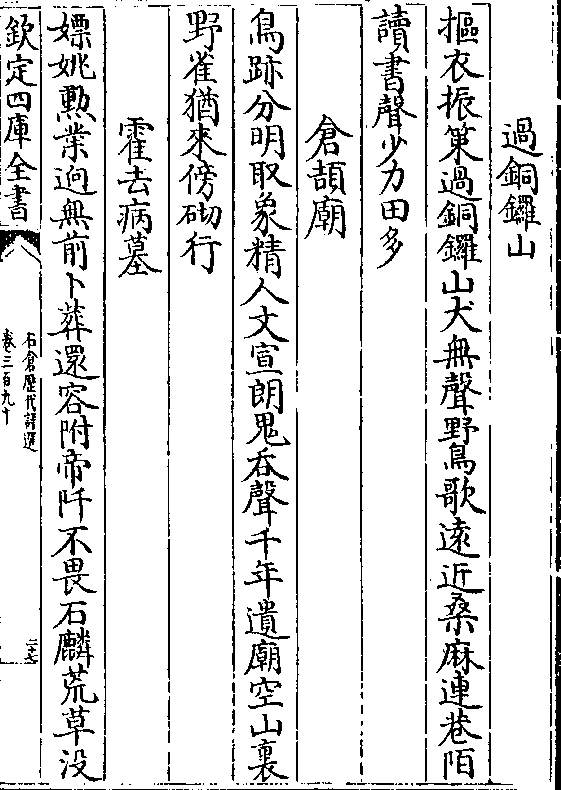 過銅鑼山
摳衣振策過銅鑼山犬無聲野鳥歌遠近桑麻連巷陌
讀書聲少力田多
倉頡廟
鳥跡分明取象精人文宣朗鬼吞聲千年遺廟空山裏
野雀猶來傍砌行
霍去病墓
嫖姚勲業逈無前卜葬還容附帝阡不畏石麟荒草没
欽定四庫全書
石倉歷代詩選
卷三百九十
三十七